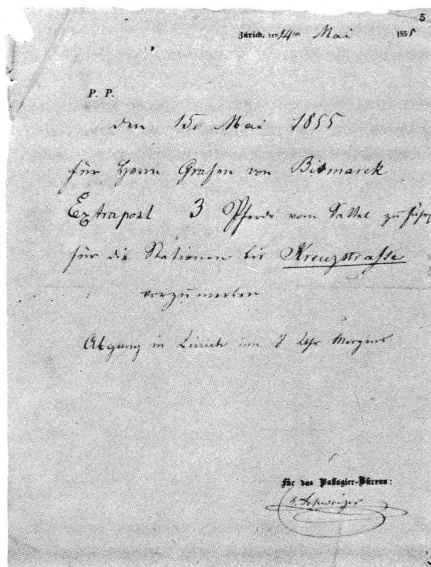 5
Zürich, den 14ten Mai 1855
P. P.
den 15. Mai 1855
für Herrn Grafen von Bismarck
Extrapost 3 Pferde vom Sattel zu führen
für die Stationen bis Kreuzstrasse
vorzumerken
Abgang in Zürich um 8 Uhr Morgens
Für das Passagier-Büreau:
Schweizer